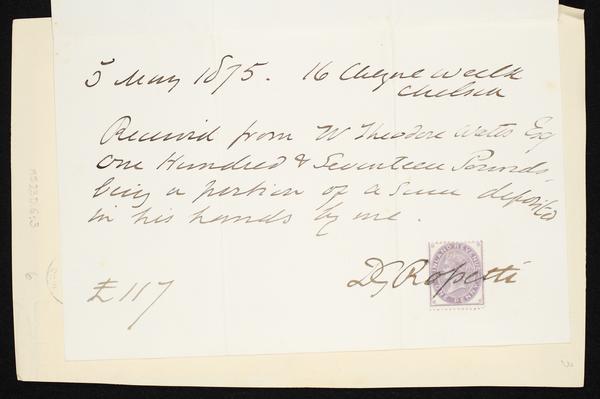 5 May 1875. 16 Cheyne Walk
Chelsea
Received from W Theodore Watts Esq
One Hundred & Seventeen Pounds
being a portion of a sum deposited
in his hands by me.
£117
DG Rossetti
INLAND REVENUE
PENNY